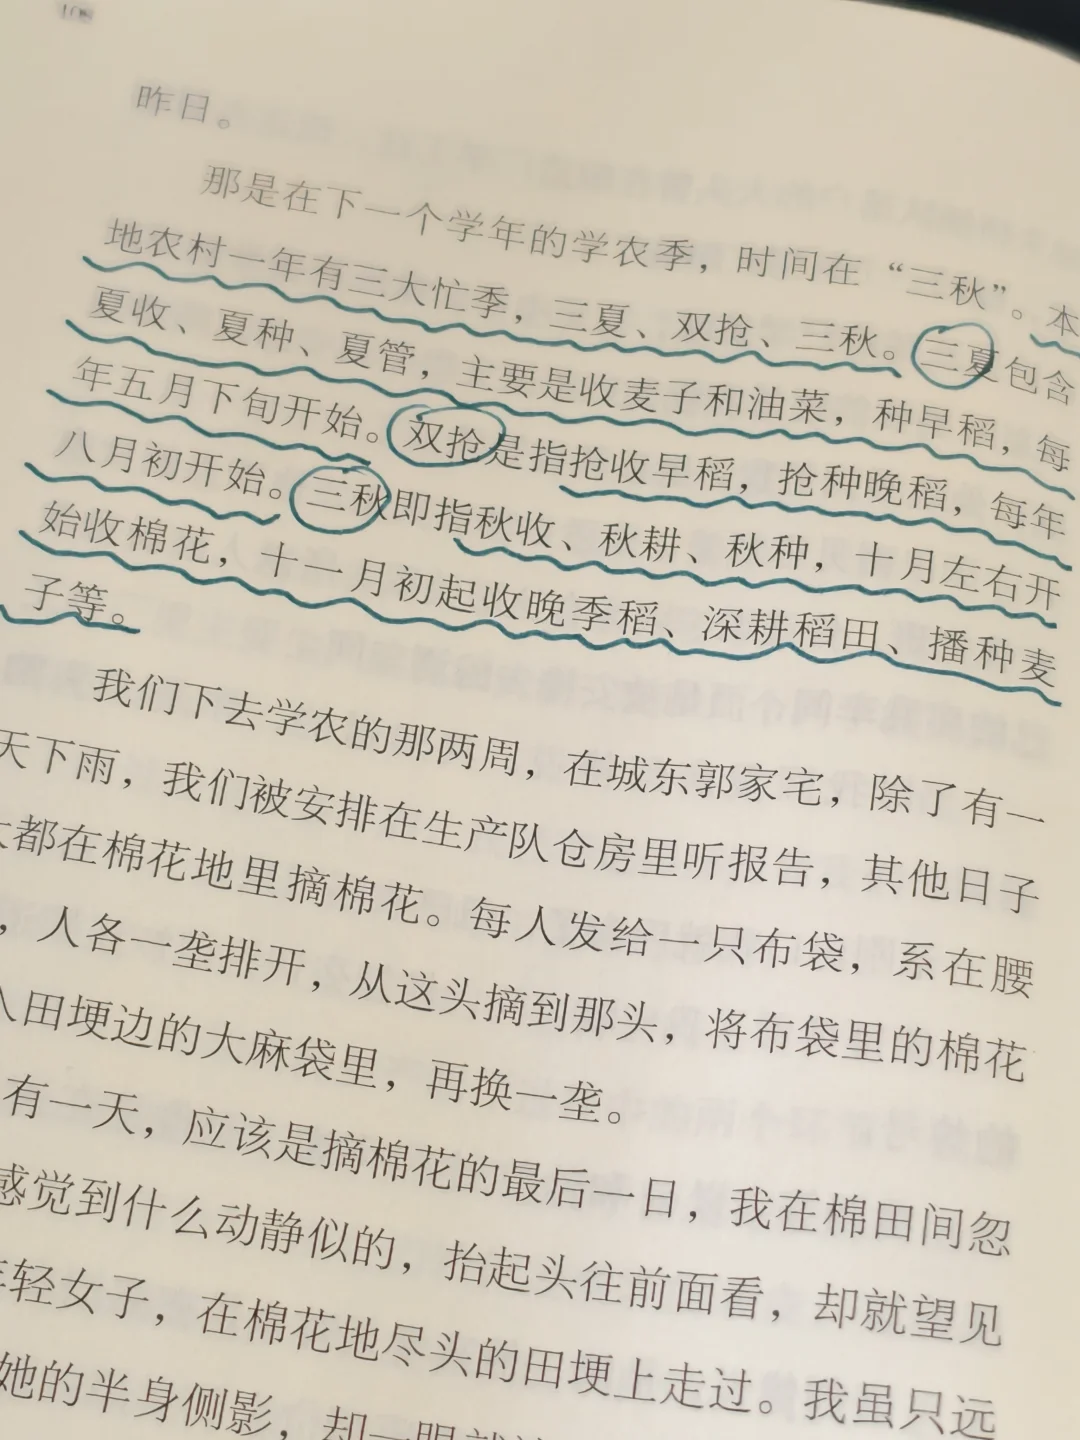 108
昨日。
那是在下一个学年的学农季，时间在“三秋”。本
地农村一年有三大忙季，三夏、双抢、三秋。三夏包含
夏收、夏种、夏管，主要是收麦子和油菜，种早稻，每
年五月下旬开始。双抢是指抢收早稻，抢种晚稻，每年
八月初开始。三秋即指秋收、秋耕、秋种，十月左右开
始收棉花，十一月初起收晚季稻、深耕稻田、播种麦
子等。
我们下去学农的那两周，在城东郭家宅，除了有一
天下雨，我们被安排在生产队仓房里听报告，其他日子
都在棉花地里摘棉花。每人发给一只布袋，系在腰
，人各一垄排开，从这头摘到那头，将布袋里的棉花
入田埂边的大麻袋里，再换一垄。
有一天，应该是摘棉花的最后一日，我在棉田间忽
感觉到什么动静似的，抬起头往前面看，却就望见
年轻女子，在棉花地尽头的田埂上走过。我虽只远
她的半身侧影，却一眼就